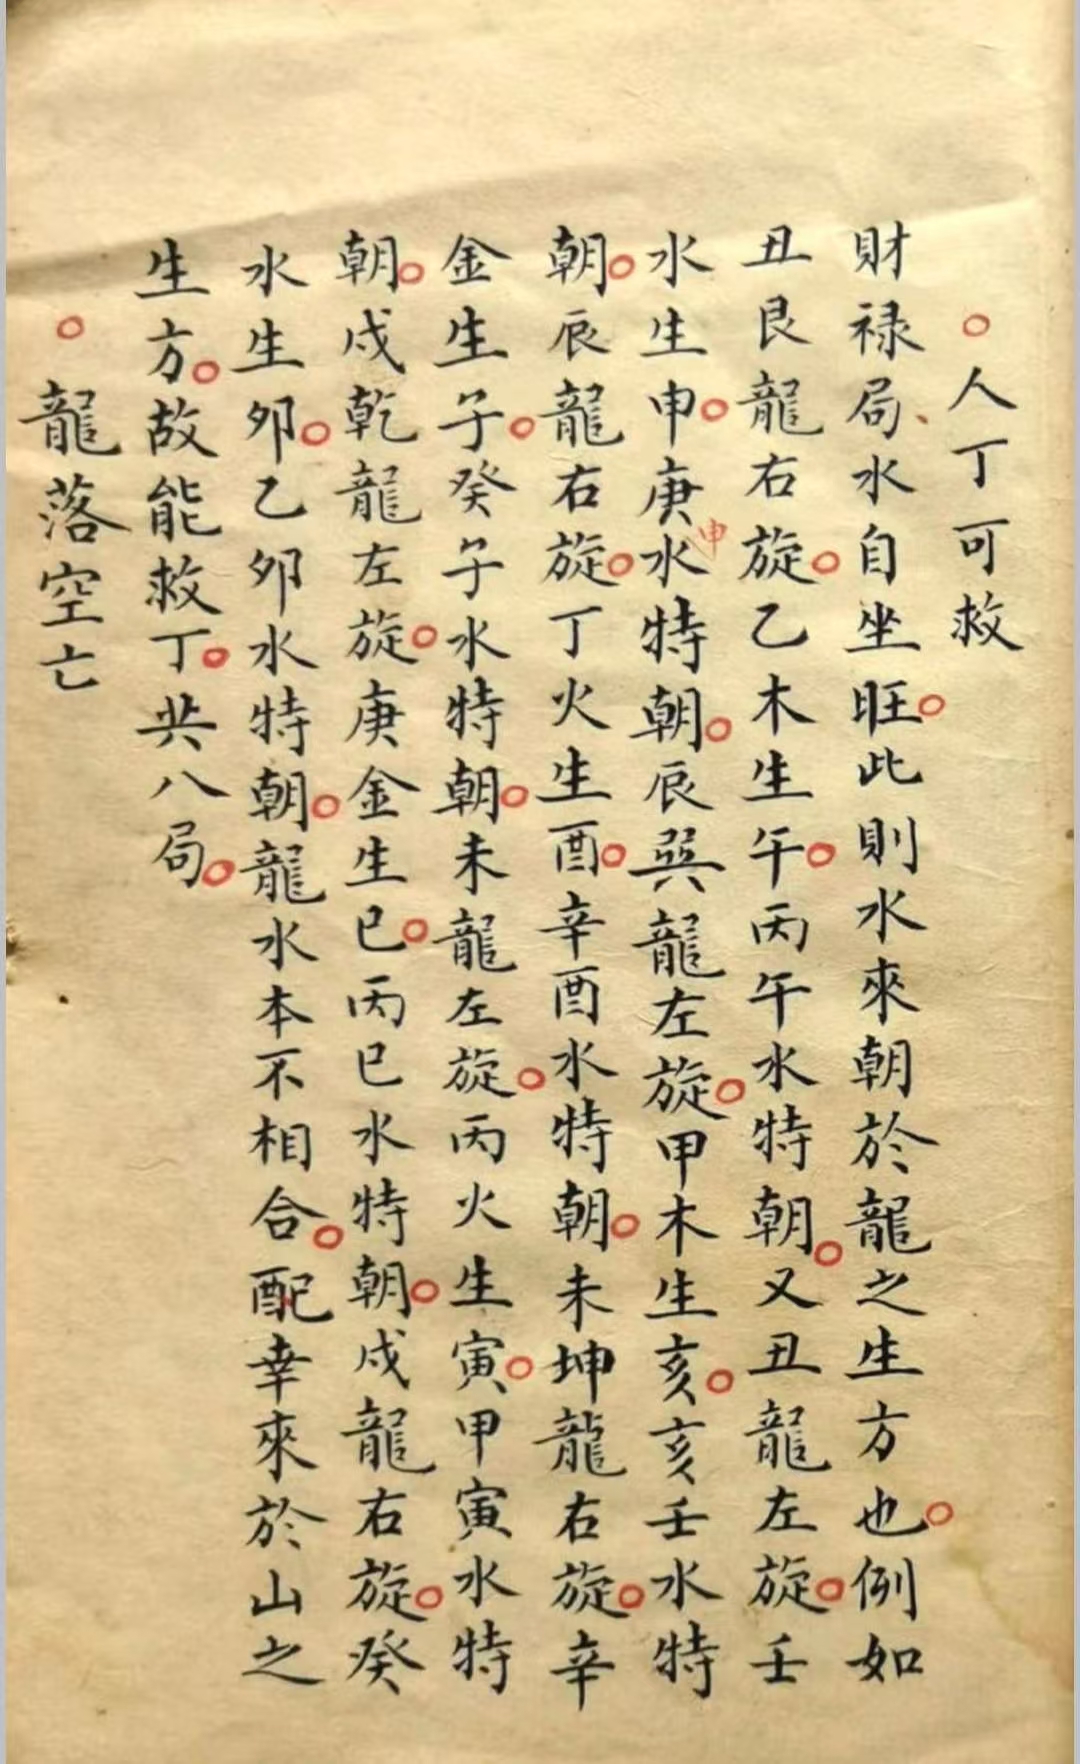 。人丁可救
財禄局、水自坐旺。此則水來朝於龍之生方也。例如
丑艮龍右旋。乙木生午。丙午水特朝。又丑龍左旋。壬
水生申。庚申水特朝。辰巽龍左旋。甲木生亥。亥壬水特
朝。辰龍右旋。丁火生酉。辛酉水特朝。未坤龍右旋。辛
金生子。癸子水特朝。未龍左旋。丙火生寅。甲寅水特
朝。戍乾龍左旋。庚金生巳。丙巳水特朝。戍龍右旋。癸
水生夘。乙夘水特朝。龍水本不相合。配幸來於山之
生方。故能救丁。共八局。
。龍落空亡